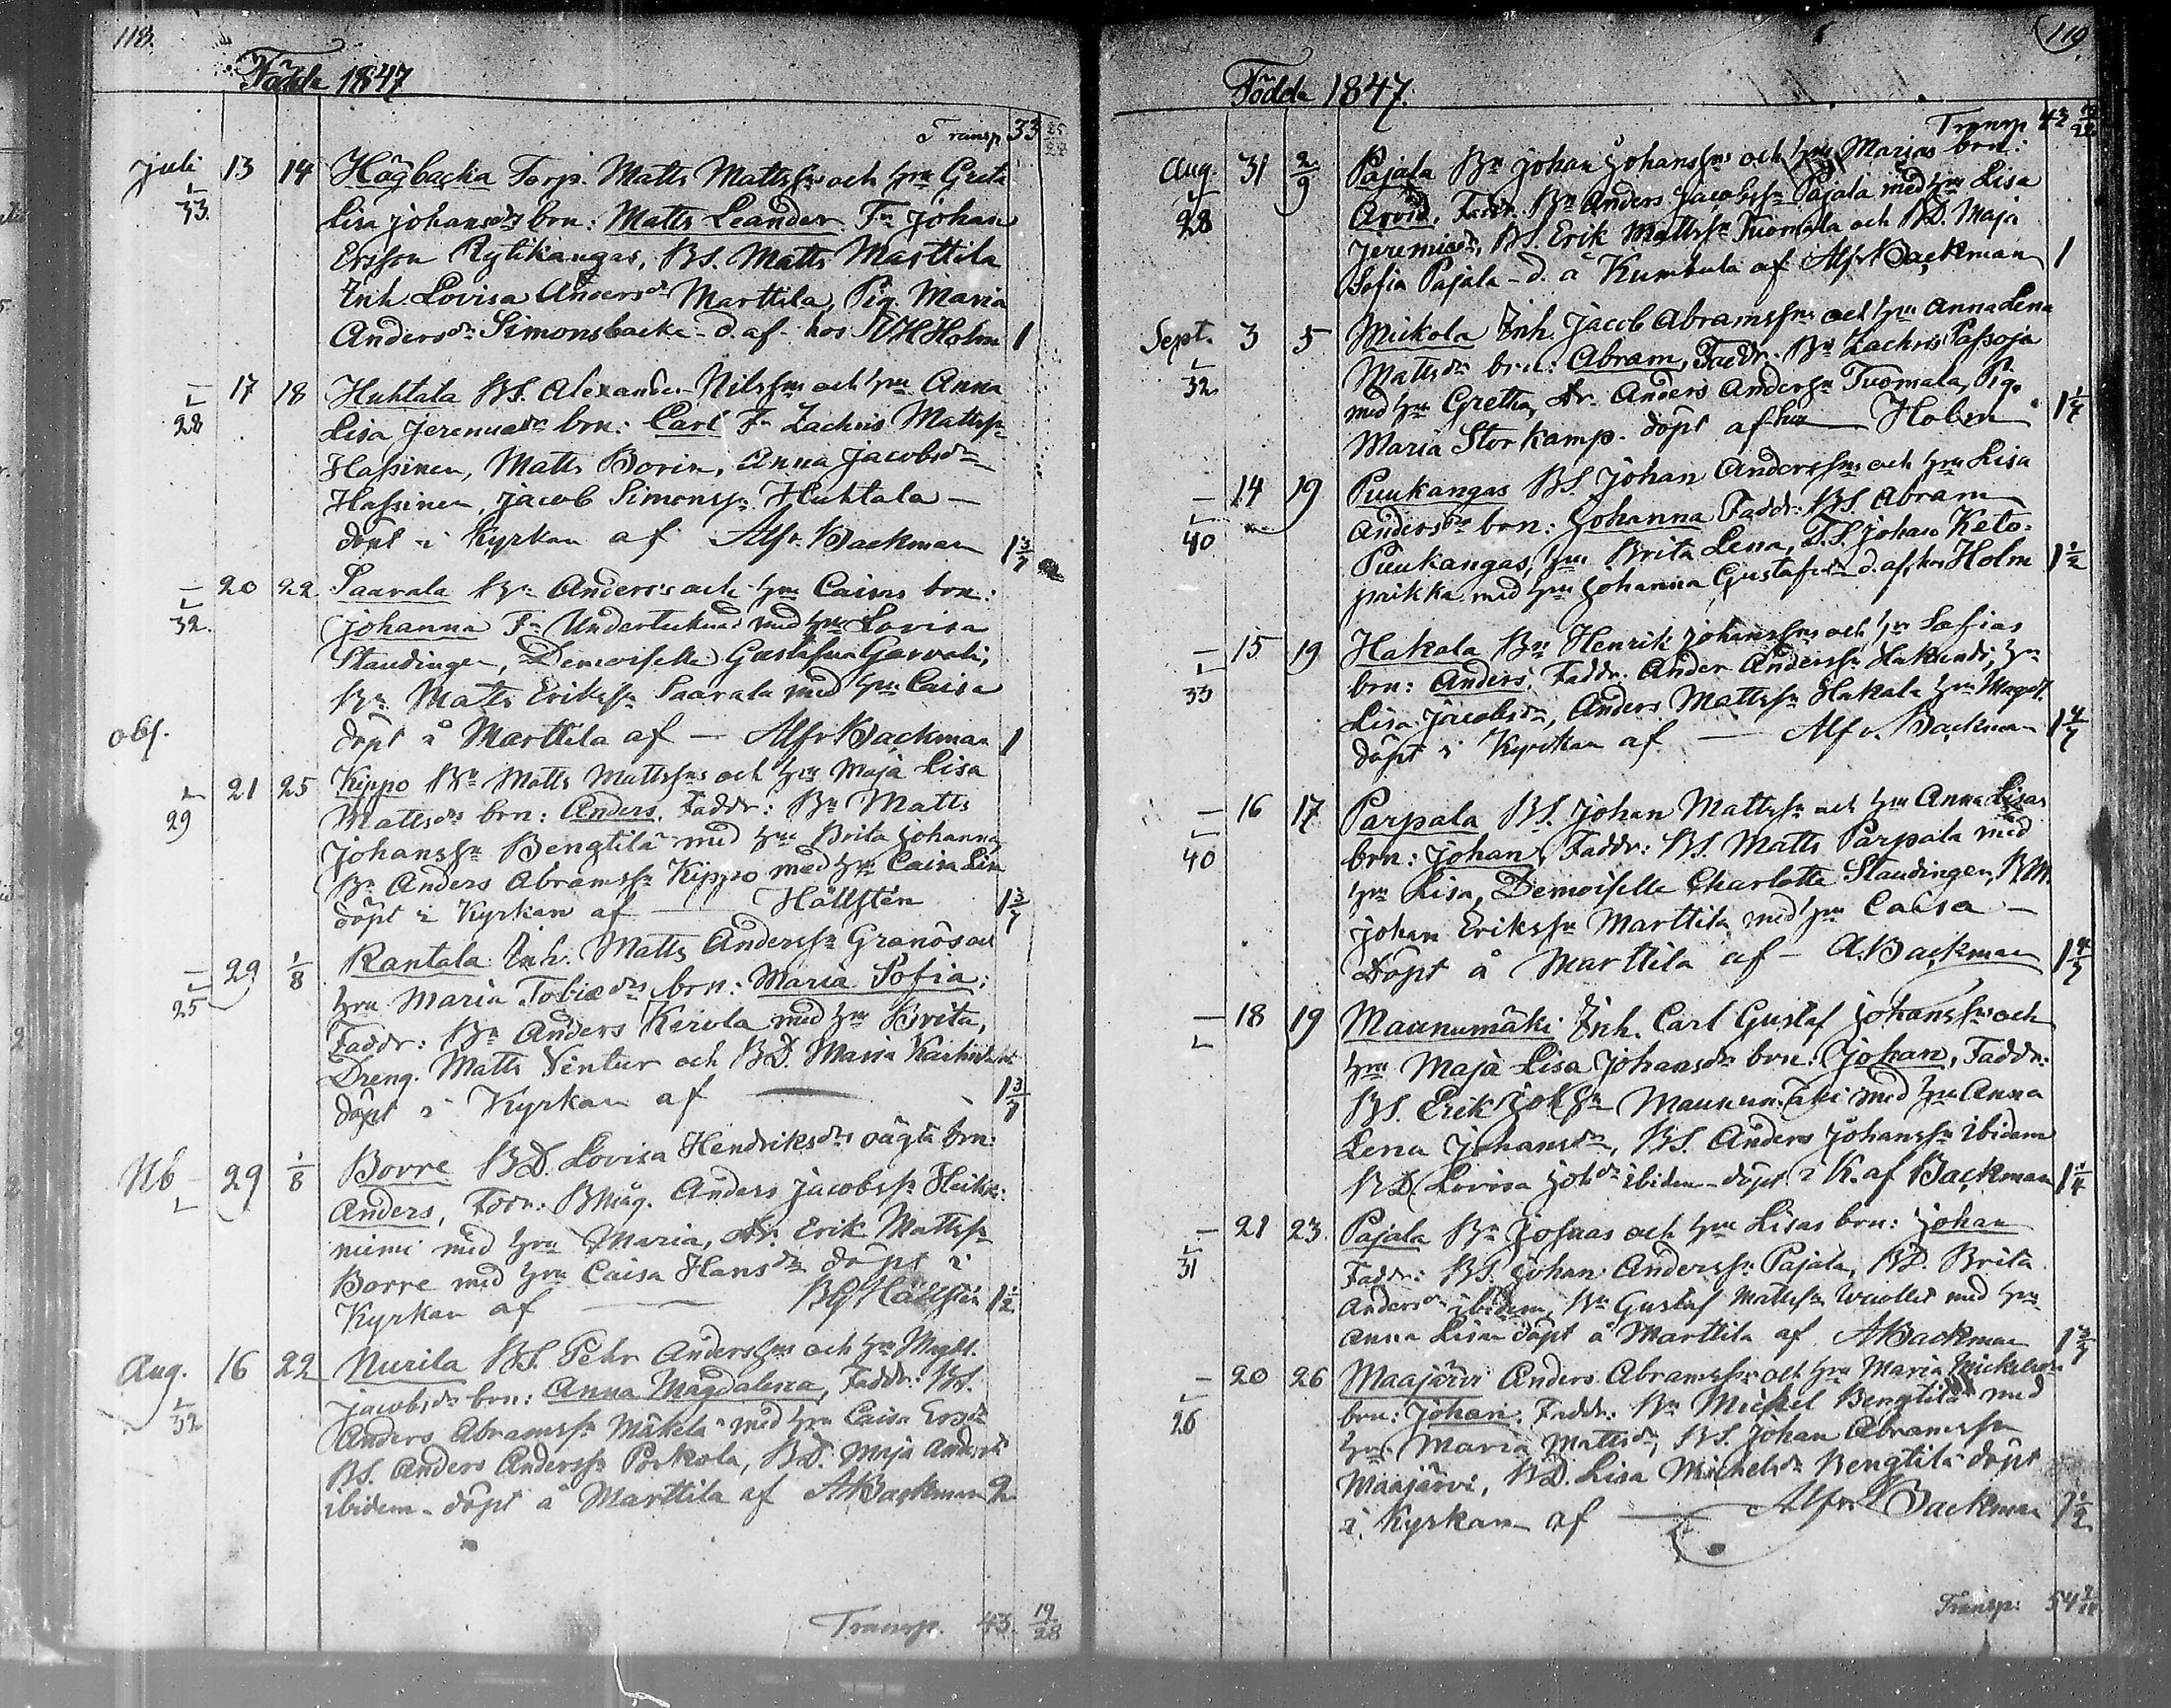 118.
Födde 1847
Transp 33 25/28
Juli 13 14 Högbacka Torp. Matts Mattssns och hru Greta
33. Lisa Johansdrs brn: Matts Leander Fr Johan
Ersson Rytikangas, BS. Matts Marttila
Inh. Lovisa Andersdr Marttila, Pig. Maria
Andersdr Simonsbacka - d. af hos Holm 1
— 17 18 Huhtala BS. Alexander Nilssns och hru Anna
28 Lisa Jeremiædrs brn: Carl Fr Zachris Mattssn
Hassinen, Matts Borin, Anna Jacobsdr
Hassinen, Jacob Simonssn Huhtala —
döpt i Kyrkan af Alfr Backman 1 3/7
— 20 22 Saarala Bn Anders's och hru Caisas brn:
32. Johanna Fr Undertecknad med hru Lovisa
Staudinger, Demoiselle Gustafva
Bn Matts Erikssn Saarala med hru Caisa
obs. döpt å Marttila af — Alfr Backman 1
21 25 Kippo Bn Matts Mattssns och hru Maja Lisa
29 Mattsdrs brn: Anders. Faddr: Bn Matts
Johanssn Bengtilä med hru Brita Johanna
Bn Anders Abramssn Kippo med hru Caisa Lisa
döpt i Kyrkan af — Hällstén 1 3/7
— 29 1/8 Rantala Inh. Matts Anderssn Granös och
25 hru Maria Tobiædrs brn: Maria Sofia;
Faddr: Bn Anders Kerola med hru Brita,
Dreng. Matts Vintur och BD. Maria
döpt i Kyrkan af — 1 3/7
Nb — 29 1/8 Borre BD. Lovisa Hendriksdrs oägta brn:
Anders, Fddr: Bmåg. Anders Jacobssn Heikki:
niemi med hru Maria, Dr. Erik Mattssn
Borre med hru Caisa Hansdr döpt i
Kyrkan af — Hällstén 1 1/2
Aug. 16 22 Nurila BS. Pehr Anderssns och hru Magdl.
32 Jacobsdrs brn: Anna Magdalena, Faddr: BS.
Anders Abramssn Mäkelä med hru Caisa Ersdr
BS. Anders Anderssn Porkola, BD. Maja Andersdr
ibidem - döpt å Marttila af ABackman 2
Transp. 43. 19/28
119.
Födde 1847.
Transp 43 19/28
Aug. 31 2/9 Pajala Bn Johan Johanssns och hru Marias brn:
28 Arvid. Faddr. Bn Anders Jacobssn Pajala med hru Lisa
Jeremiædr, BS. Erik Mattssn Tuomala och BD. Maja
Sofia Pajala - d. å Kumbula af Alfr Backman 1
Sept. 3 5 Mickola Inh. Jacob Abramssns och hru Anna Lena
32. Mattsdrs brn: Abram, Faddr. Bn Zachris Passoja
med hru Gretha, Dr. Anders Anderssn Tuomala, Pig.
Maria Storkamp. döpt af hos Holm 1 1/7
— 14 19 Puukangas BS. Johan Anderssns och hru Lisa
40 Andersdrs brn: Johanna Faddr: BS. Abram
Puukangas, hru Brita Lena, T.S. Johan Keto-
jaikka med hru Johanna Gustafsdr d. af hos Holm 1 1/2
— 15 19 Hakala Bn Henrik Johanssns och hru Sofias
33 brn: Anders. Faddr. Ander Anderssn hru
Lisa Jacobsdr, Anders Mattssn Hakala hru Magdl.
döpt i Kyrkan af — Alfr. Backman 1 4/7
— 16 17 Parpala BS. Johan Mattssn och hru Anna Lisas
40 brn: Johan, Faddr: BS. Matts Parpala med
hru Lisa, Demoiselle Charlotte Staudinger, BM.
Johan Erikssn Marttila med hru Caisa —
Döpt å Marttila af — A.Backman 1 4/7
— 18 19 Maunumäki Inh. Carl Gustaf Johanssns och
hru Maja Lisa Johansdrs brn: Johan, Faddr:
BS. Erik Johssn Maunumäki med hru Anna
Lena Johansdr, BS. Anders Johanssn ibidem
BD. Lovisa Johdr ibidem - döpt i K. af Backman 1 1/4
— 21 23. Pajala Bn Josuas och hru Lisas brn: Johan
31 Faddr: BS. Johan Anderssn Pajala, BD. Brita
Andersdr ibidem, Bn Gustaf Mattssn med hru
Anna Lisa döpt å Marttila af ABackman 1 3/7
— 20 26 Maajärvi Anders Abramssns och hru Maria Mickelsdrs
26 brn: Johan. Faddr: Bn Mickel Bengtilä med
hru Maria Mattsdr, BS. Johan Abramssn
Maajärvi, BD. Lisa Michelsdr Bengtilä döpt
i Kyrkan af — Alfr. Backman 1 1/2
Transp: 54